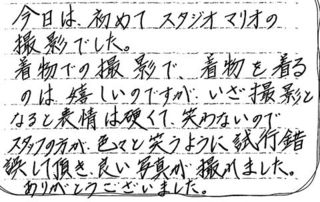 今日は、初めて スタジオマリオの
撮影でした。
着物での撮影で、着物を着る
のは嬉しいのですが、いざ撮影と
なると表情は硬くて、笑わないので
スタッフの方が、色々と笑うように試行錯
誤して頂き、良い写真が撮れました。
ありがとうございました。